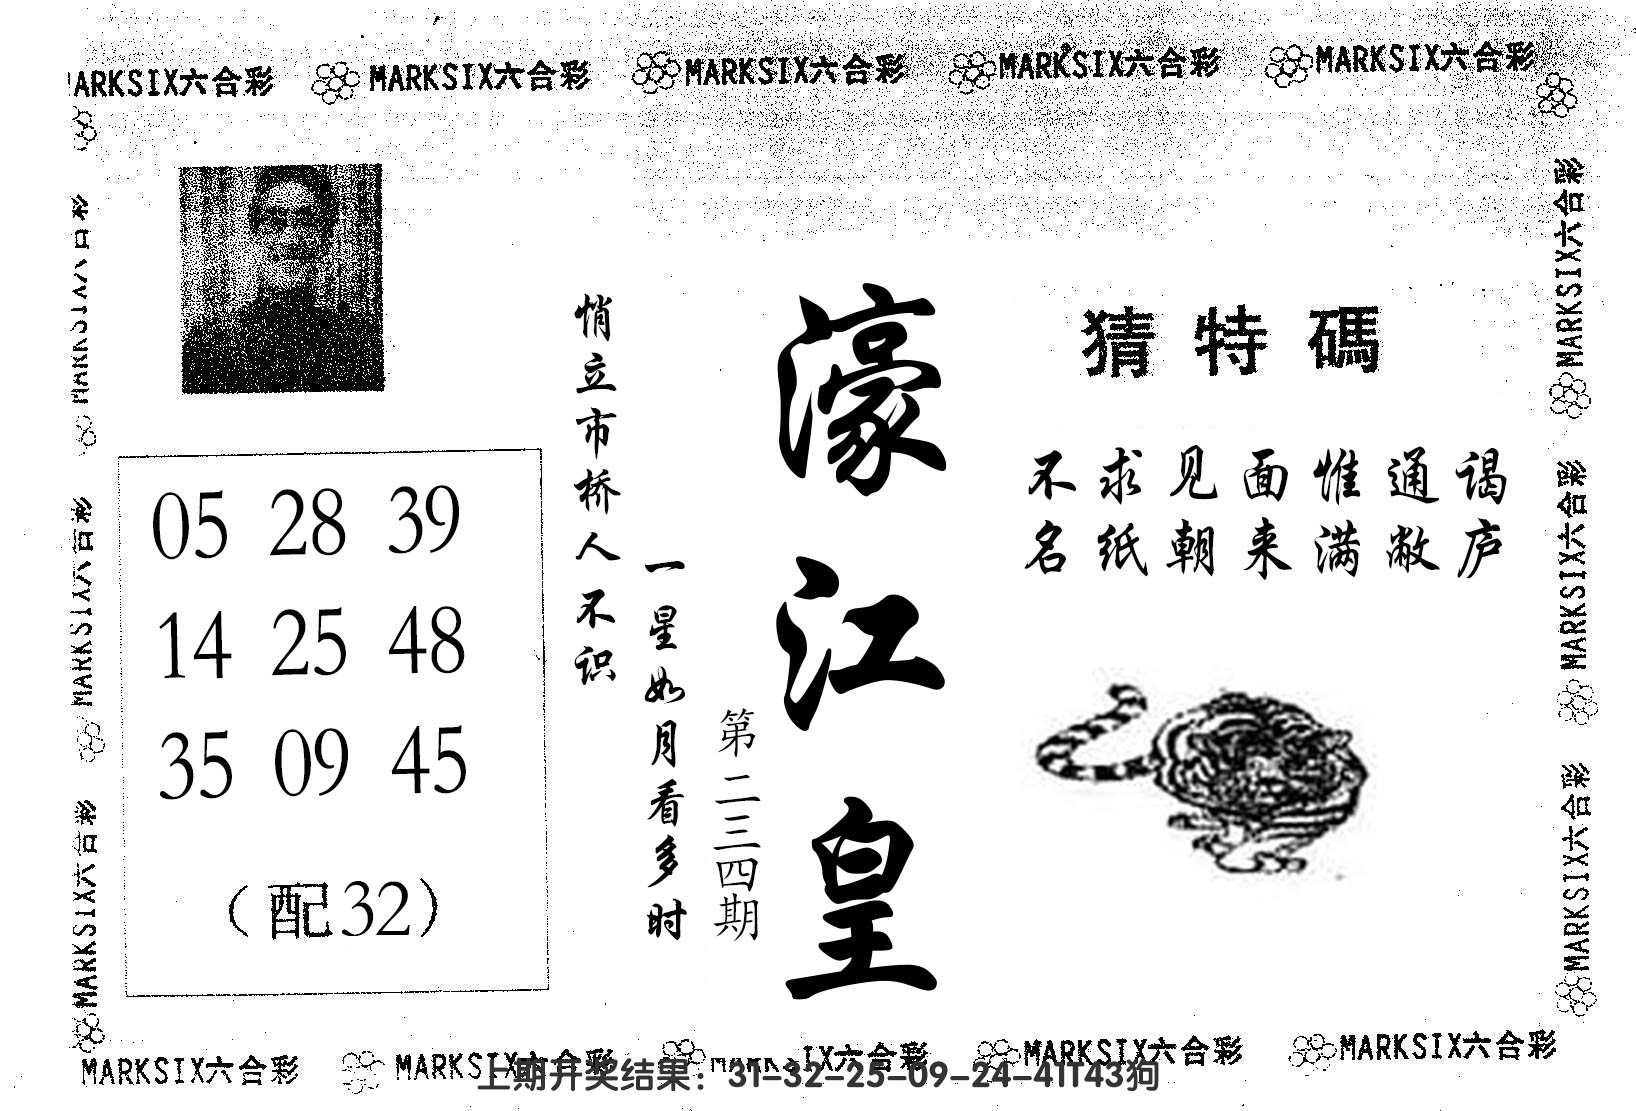 MARKSIX六合彩 MARKSIX六合彩 MARKSIX六合彩 MARKSIX六合彩 MARKSIX六合彩
MARKSIX六合彩
MARKSIX六合彩
MARKSIX六合彩
MARKSIX六合彩
MARKSIX六合彩
MARKSIX六合彩
05 28 39
14 25 48
35 09 45
（配32）
悄立市桥人不识
一星如月看多时
第二三四期
濠江皇
猜特碼
不求见面惟通谒
名纸朝来满敝庐
MARKSIX六合彩 MARKSIX六合彩 MARKSIX六合彩 MARKSIX六合彩 MARKSIX六合彩
上期开奖结果：31-32-25-09-24-41T43狗